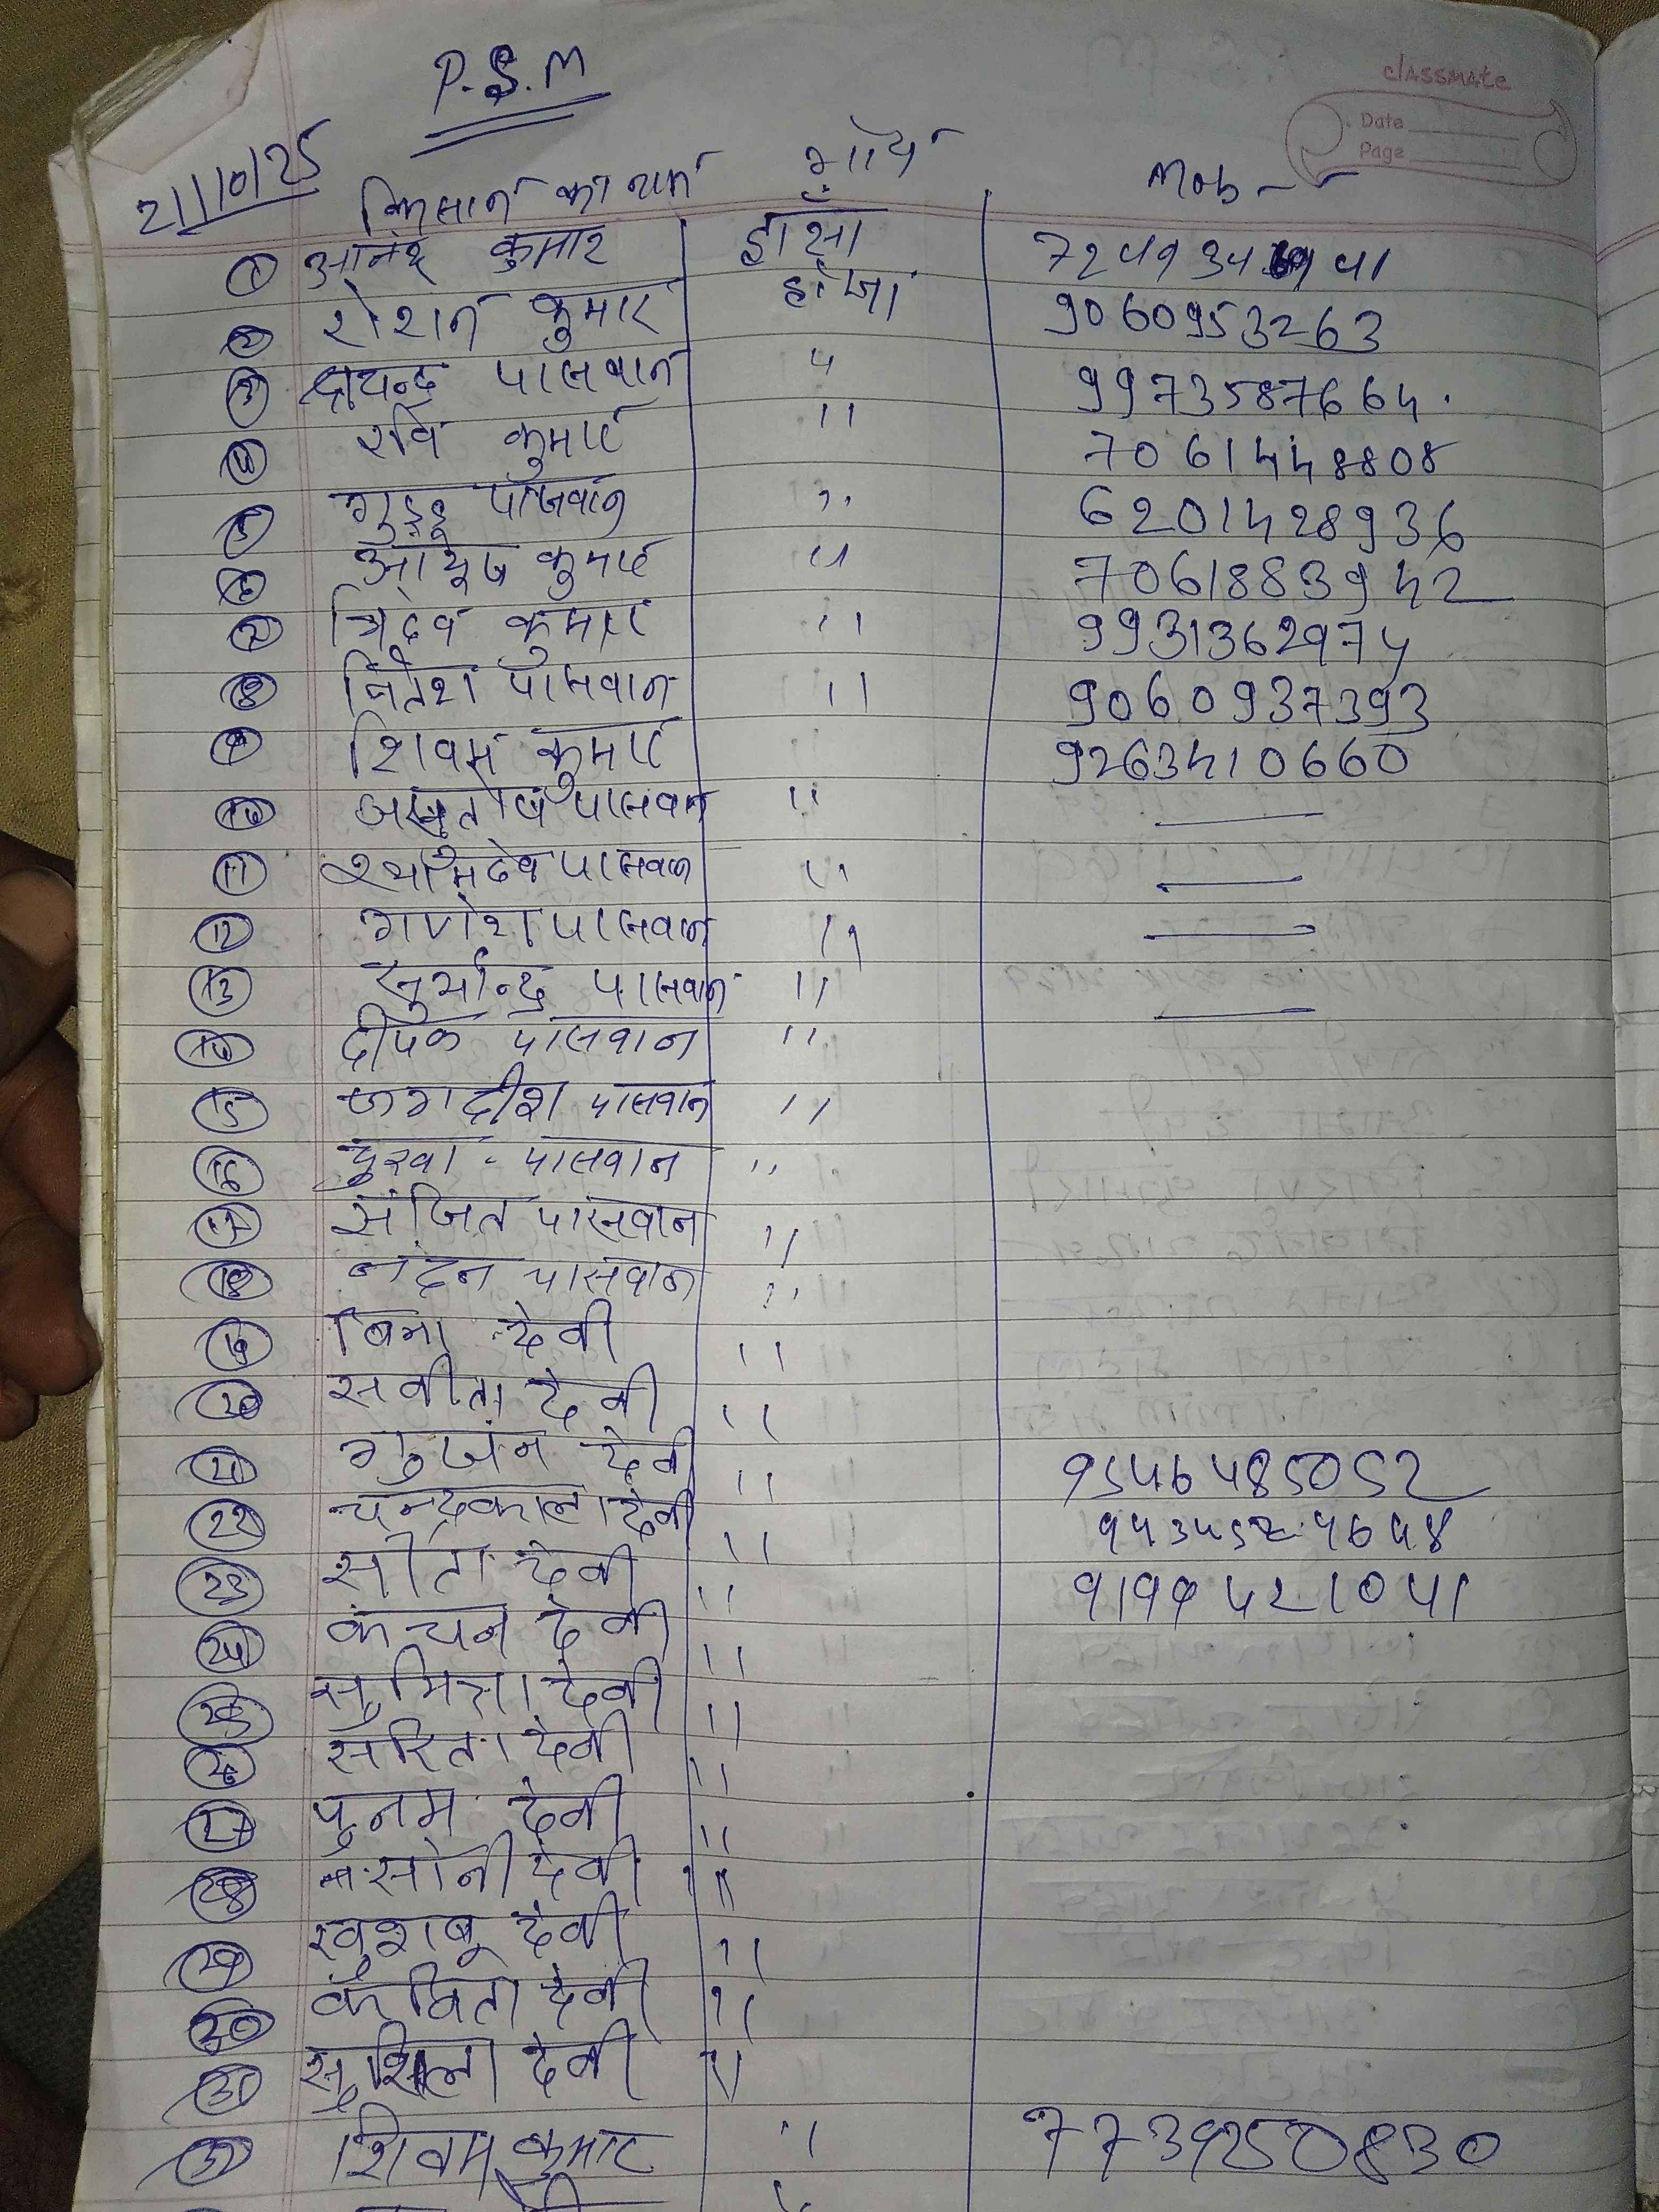 P.S.M
classmate
Date
Page
21/10/25
किसान का नाम गाँव Mob
1 आनंद कुमार हाँसा
2 रोशन कुमार 9060953263
3 पासवान " 9973587664
4 रवि कुमार " 7061448808
5 गुड्डू पासवान " 6201428936
6 आयूष कुमार " 7061883942
7 त्रिदेव कुमार " 9931362974
8 नितेश पासवान " 9060937393
9 शिवम कुमार 9263410660
10 पासवान " —
11 श्यामदेव पासवान " —
12 गणेश पासवान " —
13 पासवान " —
14 दीपक पासवान "
15 जगदीश पासवान "
16 पासवान "
17 संजित पासवान "
18 नंदन पासवान "
19 देवी "
20 सवीता देवी "
21 गुंजन देवी " 9546485052
22 चन्द्रकाला देवी "
23 सीता देवी "
24 कंचन देवी "
25 सुमित्रा देवी "
26 सरिता देवी "
27 पुनम देवी "
28 सोनी देवी "
29 खुशबू देवी "
30 कविता देवी "
31 सुशिला देवी "
शिवम कुमार " 7739250830